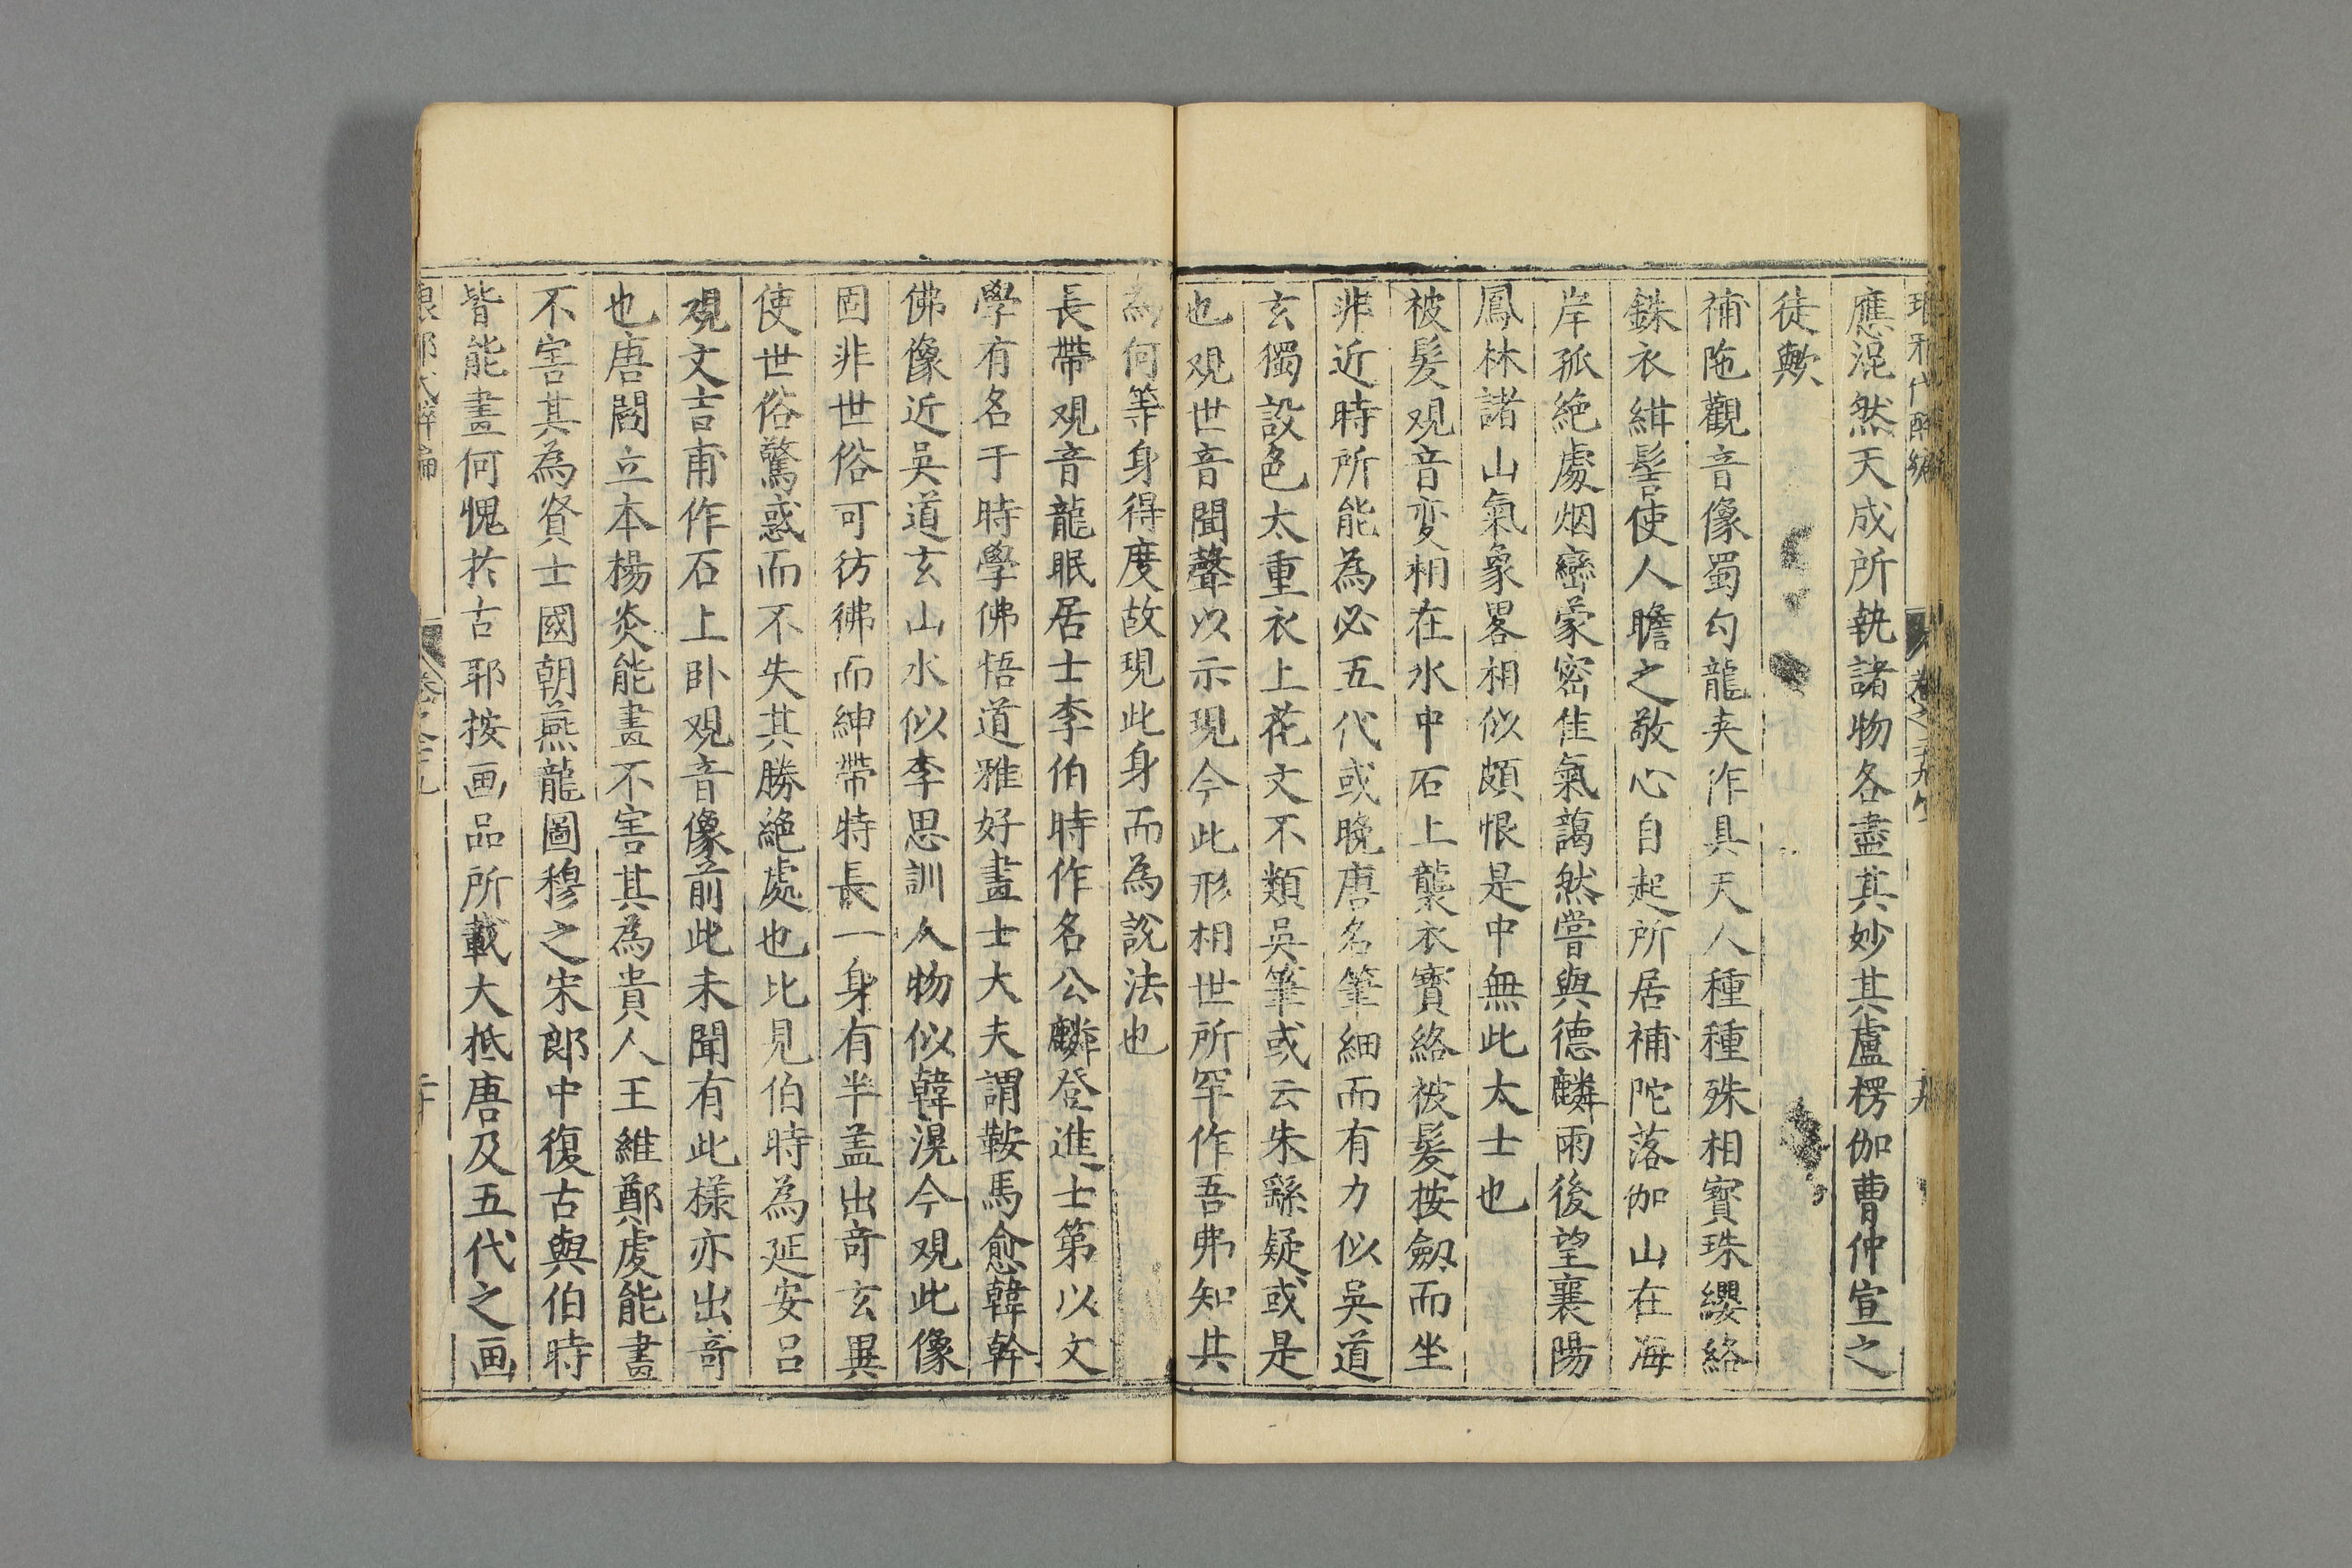 琅邪代醉編 卷之十九
應混然天成所執諸物各盡其妙其盧楞伽曹仲宣之
徒歟
補陁觀音像蜀勾龍夾作具天人種種殊相寳珠纓絡
銖衣紺髻使人瞻之敬心自起所居補陀落伽山在海
岸孤絶處烟巒蒙密隹氣藹然嘗與德麟雨後望襄陽
鳳林諸山氣象畧相似頗恨是中無此大士也
被髪观音变相在水中石上襲衣寳絡被髪按劔而坐
非近時所能為必五代或晚唐名筆細而有力似吳道
玄獨設色太重衣上花文不類吳筆或云朱繇疑或是
也观世音聞聲以示現今此形相世所罕作吾弗知其
為何等身得度故現此身而為說法也
長帶观音龍眠居士李伯時作名公麟登進士第以文
學有名于時學佛悟道雅好畫士大夫謂鞍馬愈韓幹
佛像近吳道玄山水似李思訓人物似韓滉今观此像
固非世俗可彷彿而紳帶特長一身有半盖出竒玄異
使世俗驚惑而不失其勝絶處也比見伯時為延安呂
观文吉甫作石上卧观音像前此未聞有此樣亦出竒
也唐閻立本楊炎能畫不害其為貴人王維鄭虔能畫
不害其為貧士國朝燕龍圖穆之宋郎中復古與伯時
皆能畫何愧扵古耶按画品所載大抵唐及五代之画
琅邪代醉編 卷之十九 二十